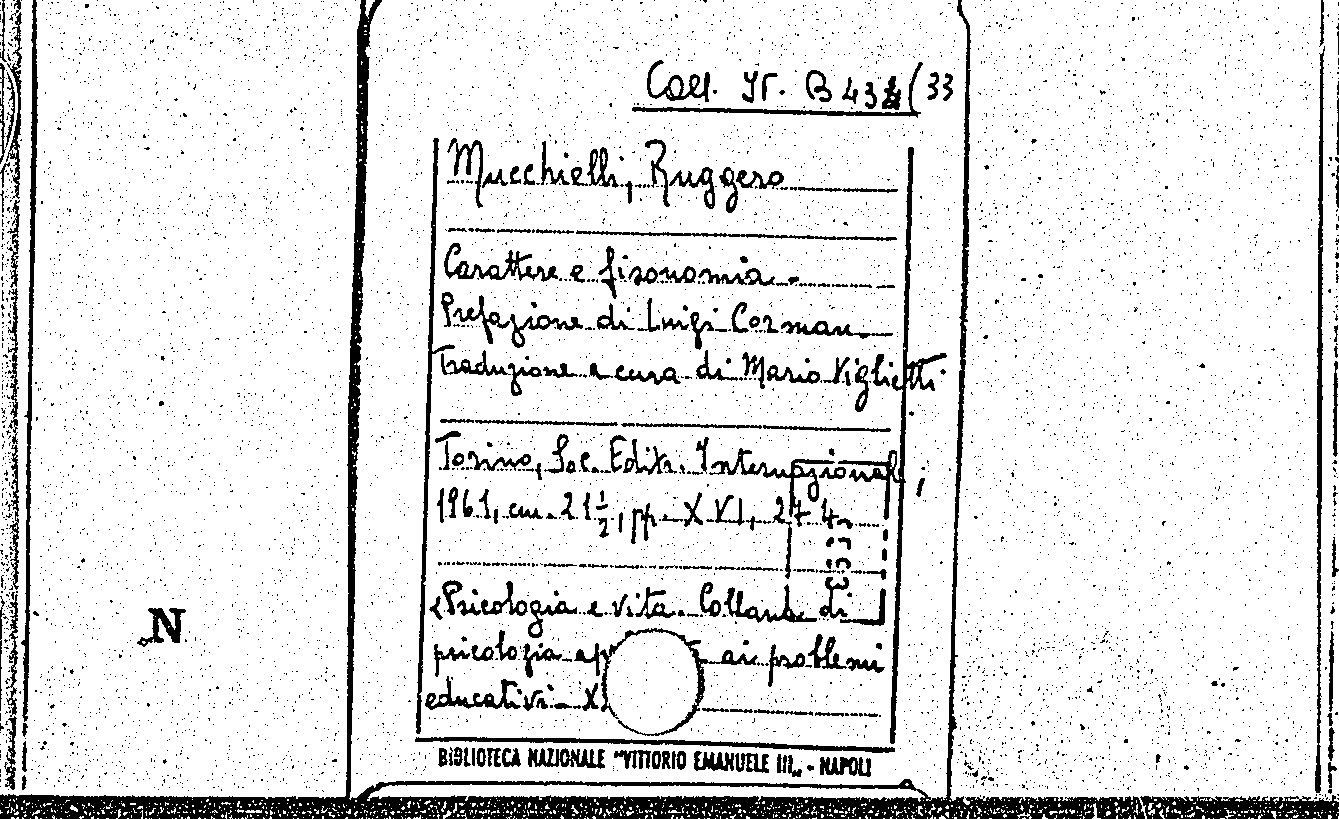 Coll. It. B 434(33
Mucchielli, Ruggero
Carattere e fisonomia -
Prefazione di Luigi Corman
Traduzione e cura di Mario Viglietti
Torino, Soc. Editr. Internazionale,
1961, cm. 21 1/2, pp. XVI, 274
«Psicologia e vita. Collana di
psicologia ai problemi
educativi -
N
BIBLIOTECA NAZIONALE "VITTORIO EMANUELE III„ - NAPOLI